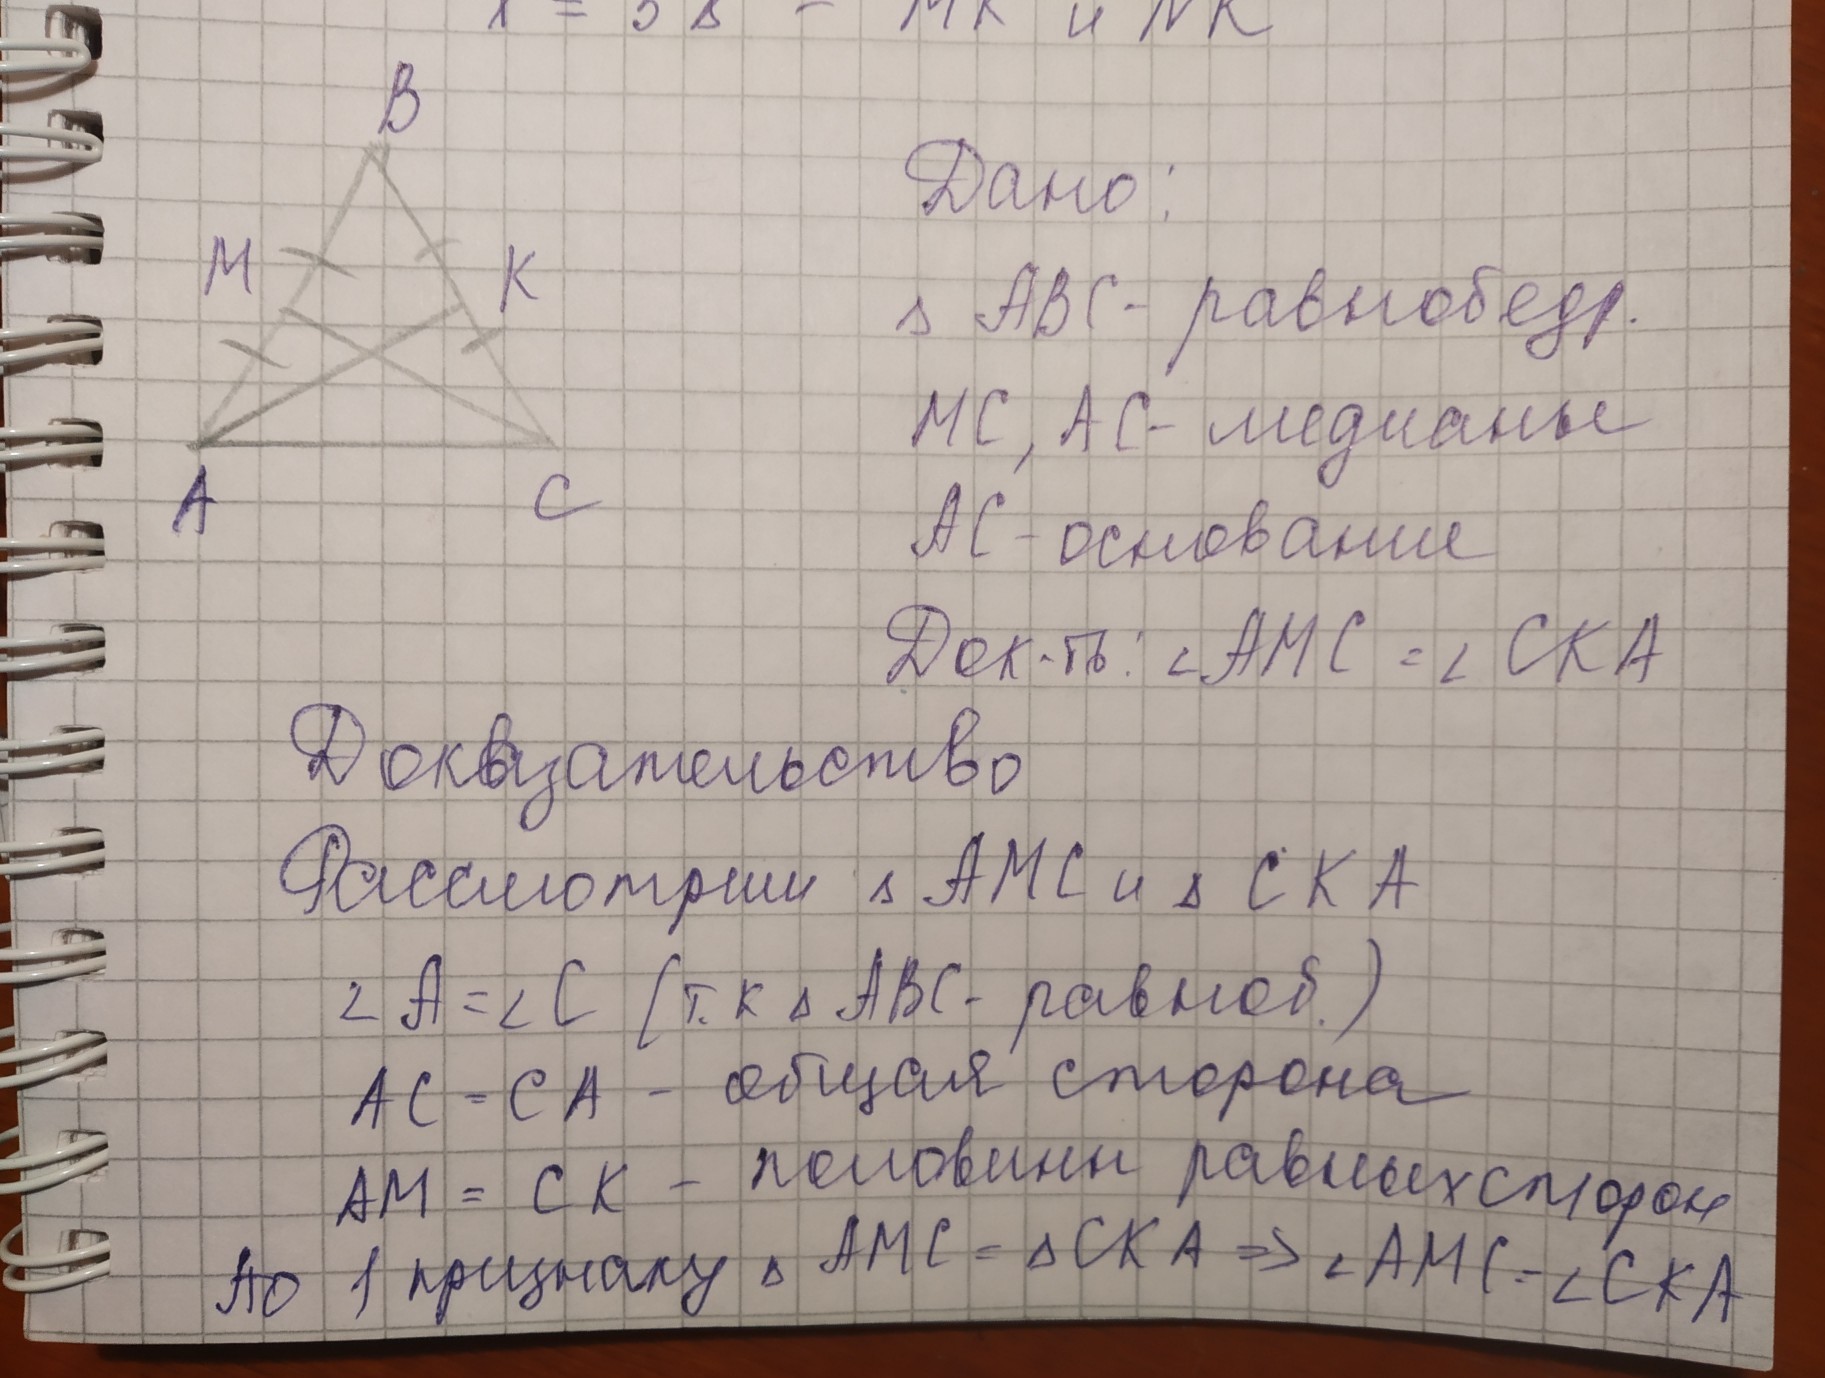 MK и NK
B
M
K
A
C
Дано:
△ ABC - равнобедр.
MC, AC - медианы
AC - основание
Док-ть: ∠AMC = ∠CKA
Доквзательство
Рассмотрим △ AMC и △ CKA
∠A = ∠C (т.к △ ABC - равноб.)
AC = CA - общая сторона
AM = CK - половинн равных сторон
По 1 признаку △ AMC = △CKA => ∠AMC = ∠CKA